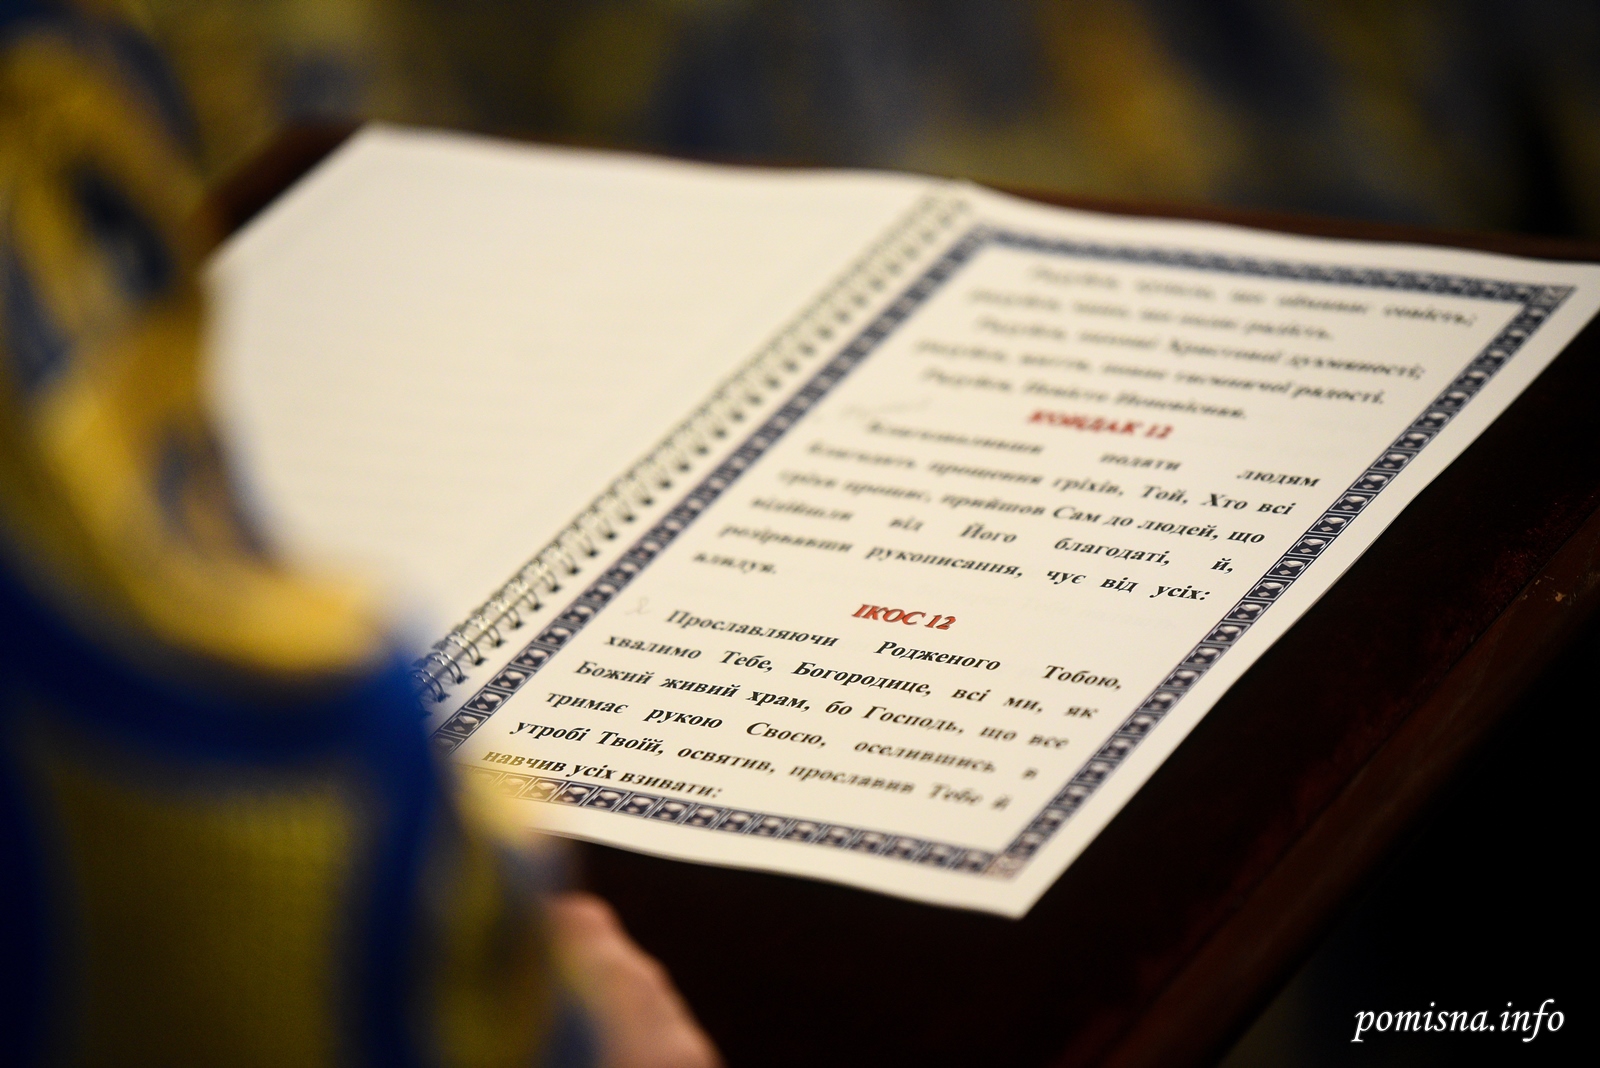 Радуйся,
Радуйся,
Радуйся, Христової духмяності;
Радуйся, життя, повне таємничої радості.
Радуйся, Невісто Неневісная.
КОНДАК 12
Благозволивши подати людям
благодать прощення гріхів, Той, Хто всі
гріхи прощає, прийшов Сам до людей, що
відійшли від Його благодаті, й,
розірвавши рукописання, чує від усіх:
алилуя.
ІКОС 12
Прославляючи Родженого Тобою,
хвалимо Тебе, Богородице, всі ми, як
Божий живий храм, бо Господь, що все
тримає рукою Своєю, оселившись в
утробі Твоїй, освятив, прославив Тебе й
навчив усіх взивати:
pomisna.info